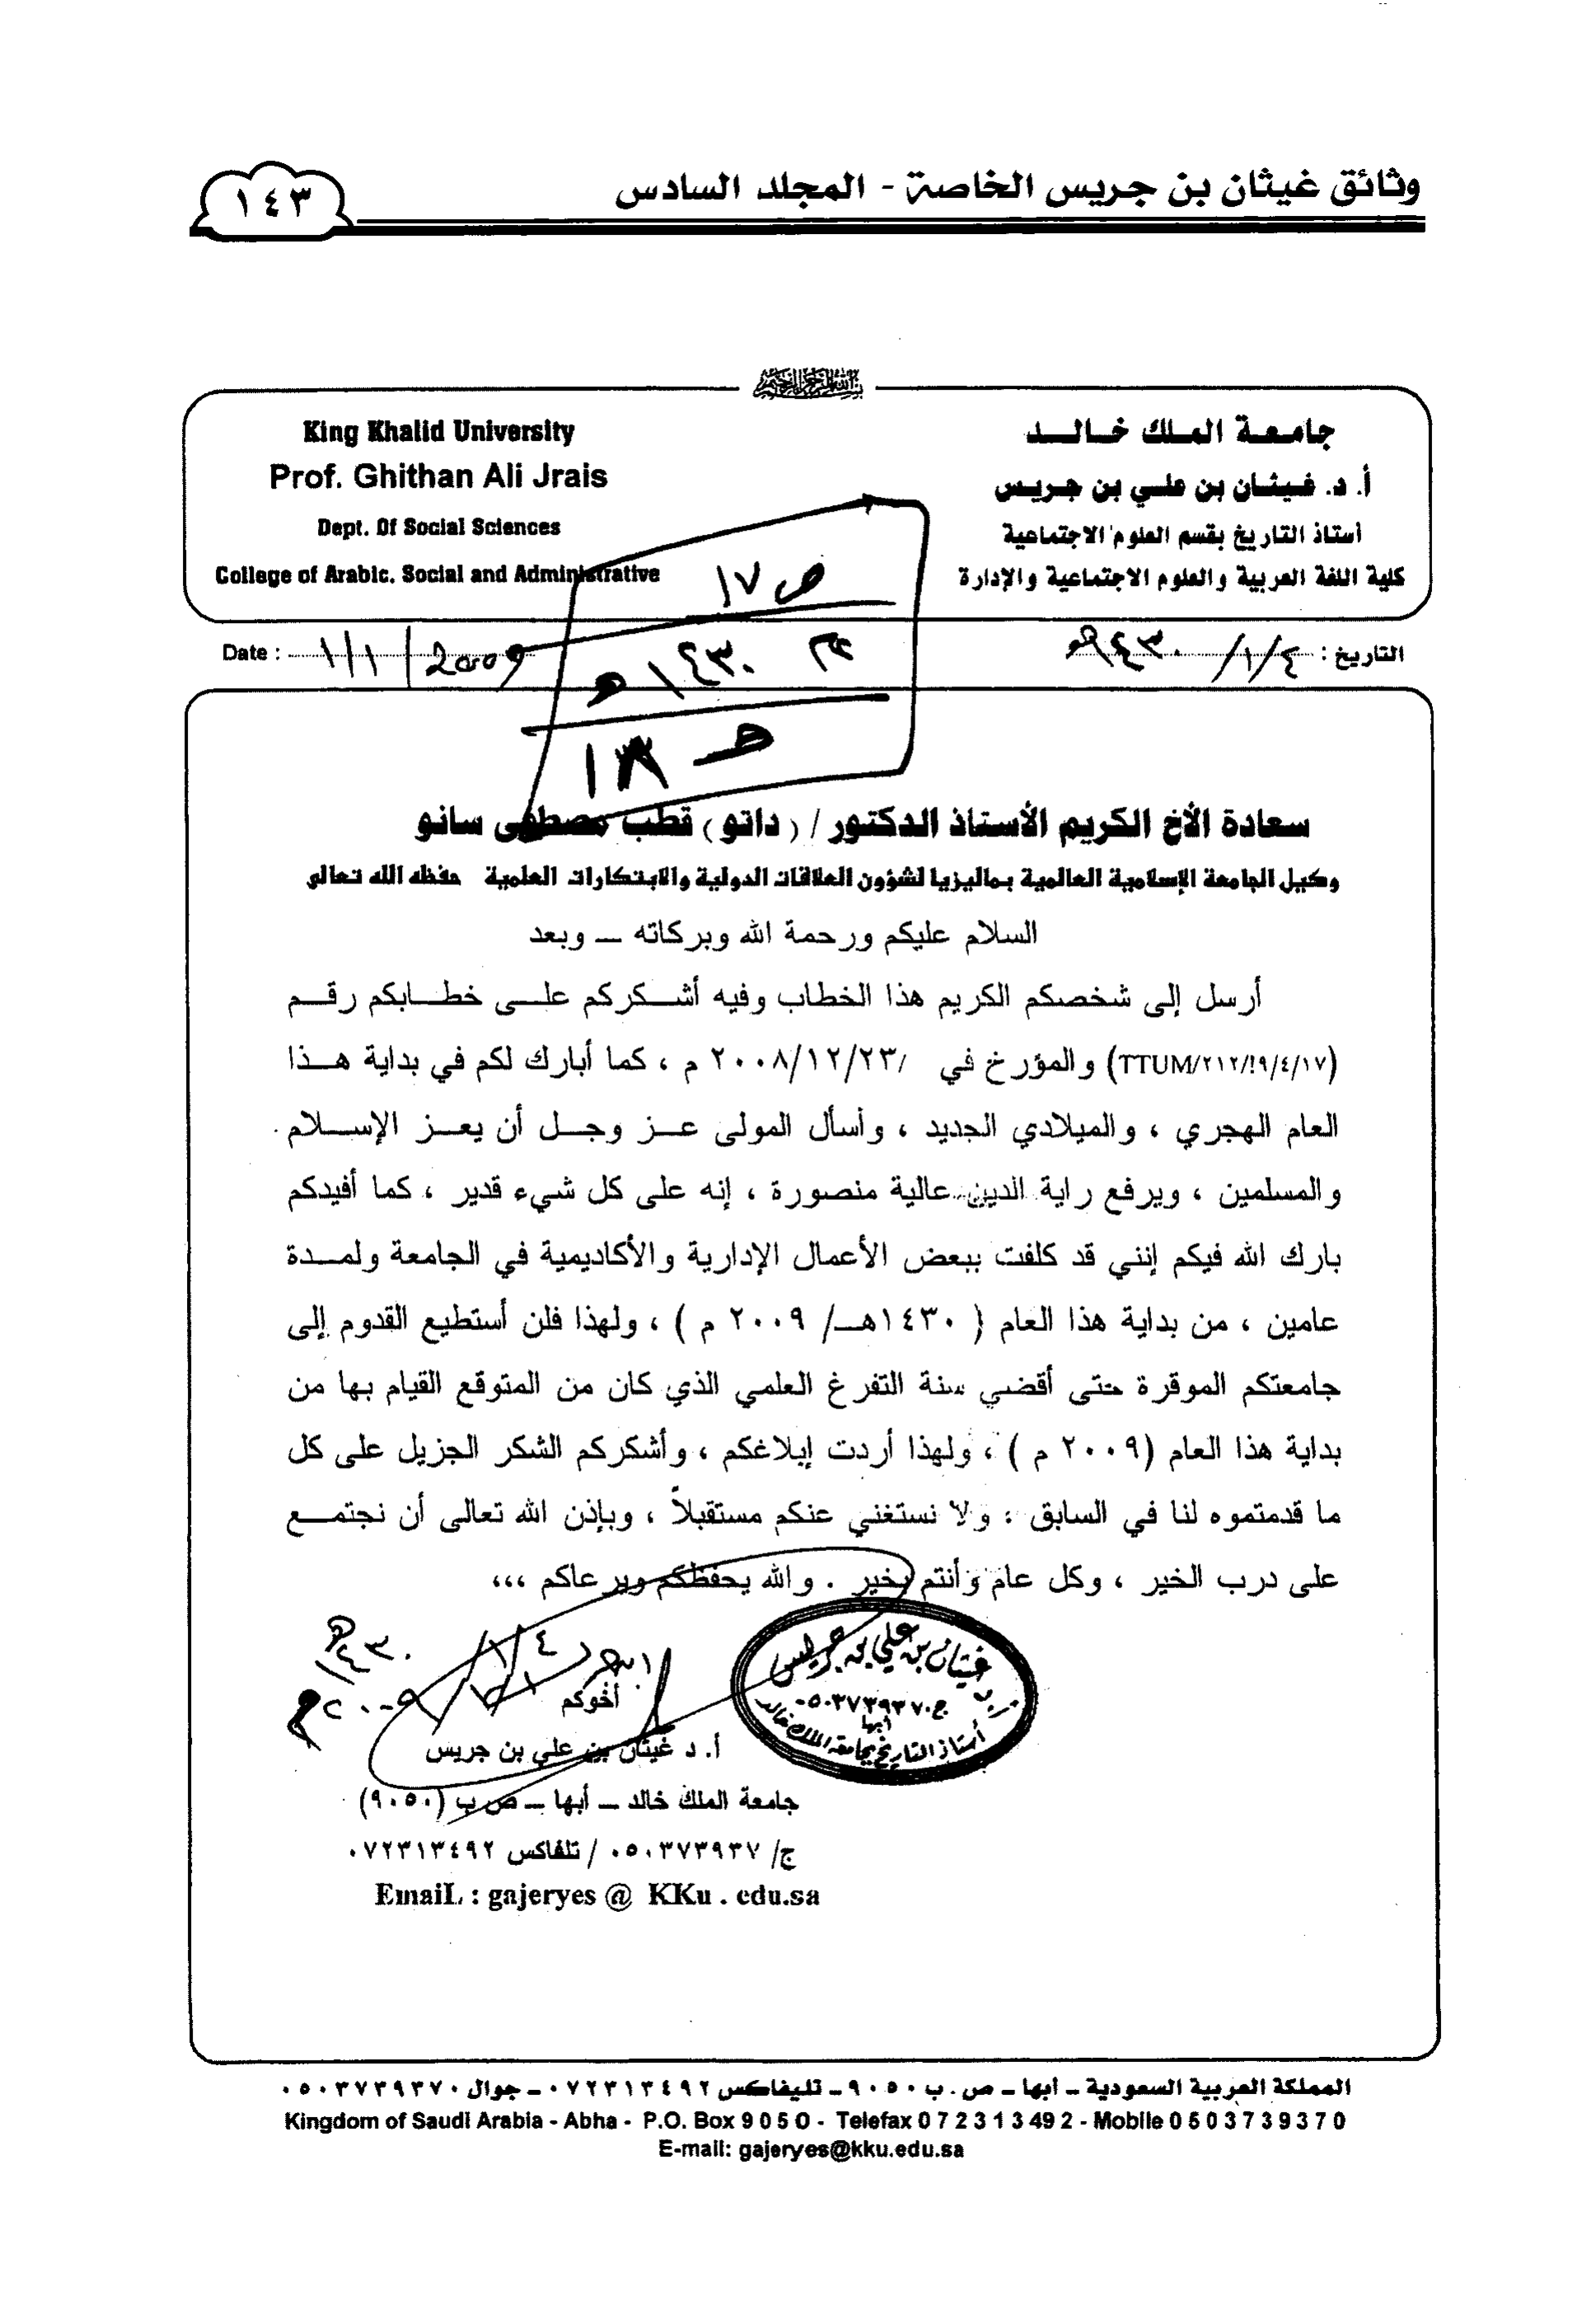 وثائق غيثان بن جريس الخاصة - المجلد السادس
١٤٣
بسم الله الرحمن الرحيم
جامعة الملك خالد
أ. د. غيثان بن علي بن جريس
أستاذ التاريخ بقسم العلوم الاجتماعية
كلية اللغة العربية والعلوم الاجتماعية والإدارة
King Khalid University
Prof. Ghithan Ali Jrais
Dept. Of Social Sciences
College of Arabic. Social and Administrative
ص ١٧
١٤٣٠ هـ
التاريخ : ٤/١/١٤٣٠هـ
Date : ١/١/2009
سعادة الأخ الكريم الأستاذ الدكتور / (داتو) قطب مصطفى سانو
وكيل الجامعة الإسلامية العالمية بماليزيا لشؤون العلاقات الدولية والابتكارات العلمية حفظه الله تعالى
السلام عليكم ورحمة الله وبركاته ــ وبعد
أرسل إلى شخصكم الكريم هذا الخطاب وفيه أشكركم على خطابكم رقم
(TTUM/٢١٢/!٩/٤/١٧) والمؤرخ في /٢٠٠٨/١٢/٢٣ م ، كما أبارك لكم في بداية هذا
العام الهجري ، والميلادي الجديد ، وأسأل المولى عز وجل أن يعز الإسلام
والمسلمين ، ويرفع راية الدين عالية منصورة ، إنه على كل شيء قدير ، كما أفيدكم
بارك الله فيكم إنني قد كلفت ببعض الأعمال الإدارية والأكاديمية في الجامعة ولمدة
عامين ، من بداية هذا العام ( ١٤٣٠هـ/ ٢٠٠٩ م ) ، ولهذا فلن أستطيع القدوم إلى
جامعتكم الموقرة حتى أقضي سنة التفرغ العلمي الذي كان من المتوقع القيام بها من
بداية هذا العام (٢٠٠٩ م ) ، ولهذا أردت إبلاغكم ، وأشكركم الشكر الجزيل على كل
ما قدمتموه لنا في السابق ، ولا نستغني عنكم مستقبلاً ، وبإذن الله تعالى أن نجتمع
على درب الخير ، وكل عام وأنتم بخير . والله يحفظكم ويرعاكم ،،،
غيثان بن علي بن جريس
ج.٠٥٠٣٧٣٩٣٧٠
أبها
أستاذ التاريخ بجامعة الملك خالد
٤/١/١٤٣٠هـ
١/١/٢٠٠٩م
أخوكم
أ. د غيثان بن علي بن جريس
جامعة الملك خالد ــ أبها ــ ص ب (٩٠٥٠)
ج/ ٠٥٠٣٧٣٩٣٧ / تلفاكس ٠٧٢٣١٣٤٩٢
EmaiL : gajeryes @ KKu . edu.sa
المملكة العربية السعودية ــ أبها ــ ص . ب ٩٠٥٠ ــ تليفاكس ٠٧٢٣١٣٤٩٢ ــ جوال ٠٥٠٣٧٣٩٣٧٠
Kingdom of Saudi Arabia - Abha - P.O. Box 9 0 5 0 - Telefax 0 7 2 3 1 3 49 2 - Mobile 0 5 0 3 7 3 9 3 7 0
E-mail: gajeryes@kku.edu.sa